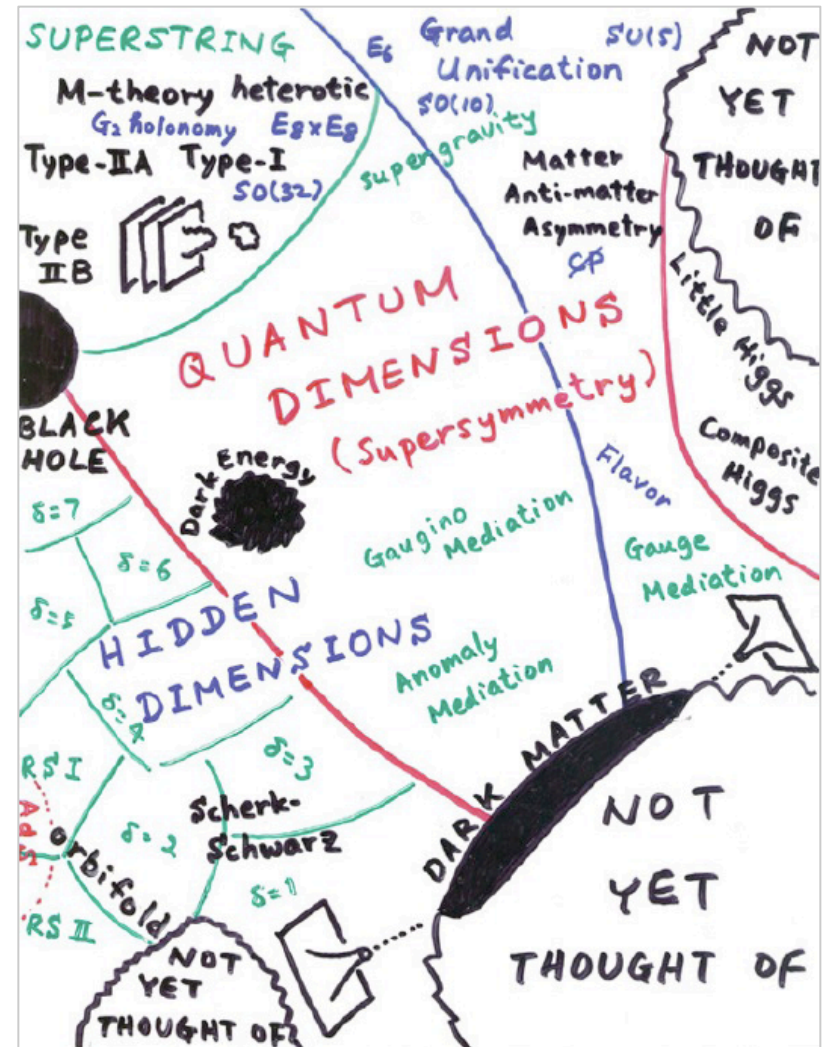 SUPERSTRING
M-theory heterotic
G₂ holonomy E₈×E₈
Type-IIA Type-I
SO(32)
Type
IIB
E₆
Grand
Unification
SU(5)
SO(10)
supergravity
Matter
Anti-matter
Asymmetry
CP
NOT
YET
THOUGHT
OF
Little Higgs
Composite
Higgs
QUANTUM
DIMENSIONS
(Supersymmetry)
BLACK
HOLE
Dark Energy
Flavor
Gaugino
Mediation
Gauge
Mediation
δ=7
δ=6
δ=5
HIDDEN
DIMENSIONS
Anomaly
Mediation
δ=4
δ=3
DARK MATTER
RS I
AdS
orbifold
δ=2
Scherk-
Schwarz
δ=1
RS II
NOT
YET
THOUGHT OF
NOT
YET
THOUGHT OF